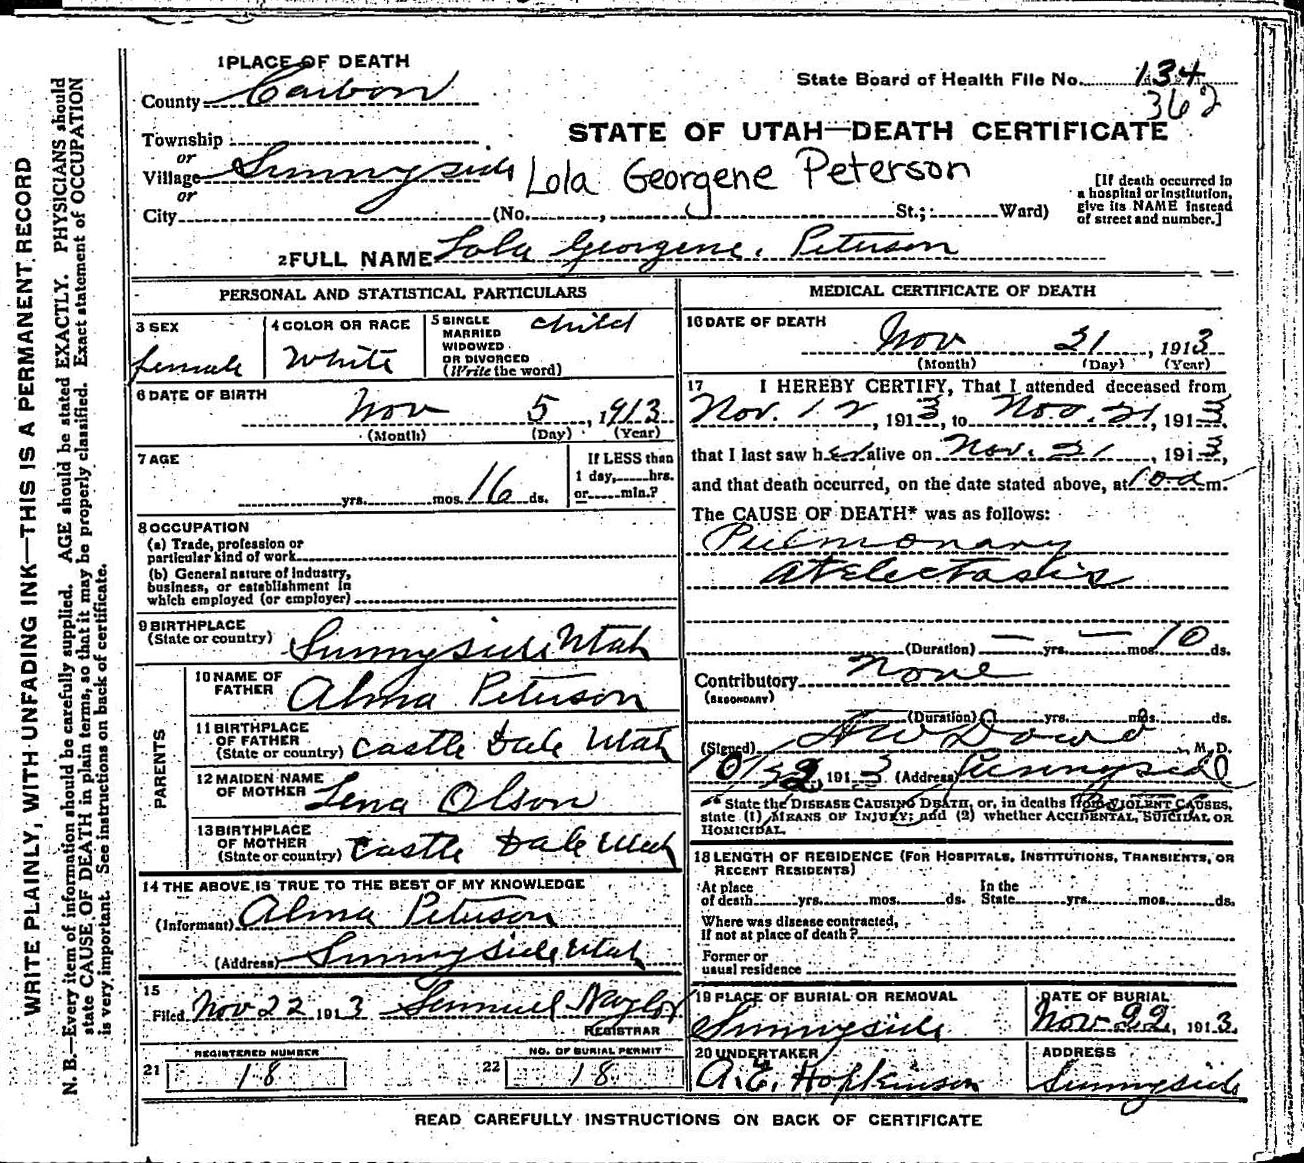 1 PLACE OF DEATH
County Carbon
State Board of Health File No. 134
362
Township
or
Village Sunnyside
or
City (No. , St.; Ward)
STATE OF UTAH—DEATH CERTIFICATE
Lola Georgene Peterson
[If death occurred in
a hospital or institution,
give its NAME instead
of street and number.]
2 FULL NAME Lola Georgene Peterson
PERSONAL AND STATISTICAL PARTICULARS
3 SEX
female
4 COLOR OR RACE
White
5 SINGLE
MARRIED
WIDOWED
OR DIVORCED
(Write the word)
child
6 DATE OF BIRTH
Nov 5, 1913
(Month) (Day) (Year)
7 AGE
yrs. mos. 16 ds.
If LESS than
1 day, hrs.
or min.?
8 OCCUPATION
(a) Trade, profession or
particular kind of work
(b) General nature of industry,
business, or establishment in
which employed (or employer)
9 BIRTHPLACE
(State or country) Sunnyside Utah
PARENTS
10 NAME OF
FATHER Alma Peterson
11 BIRTHPLACE
OF FATHER
(State or country) Castle Dale Utah
12 MAIDEN NAME
OF MOTHER Lena Olson
13 BIRTHPLACE
OF MOTHER
(State or country) Castle Dale Utah
14 THE ABOVE IS TRUE TO THE BEST OF MY KNOWLEDGE
(Informant) Alma Peterson
(Address) Sunnyside Utah
15
Filed Nov 22 1913 Samuel Naylor
REGISTRAR
REGISTERED NUMBER
21 18
NO. OF BURIAL PERMIT
22 18
MEDICAL CERTIFICATE OF DEATH
16 DATE OF DEATH
Nov 21, 1913
(Month) (Day) (Year)
17 I HEREBY CERTIFY, That I attended deceased from
Nov. 12, 1913, to Nov. 21, 1913,
that I last saw her alive on Nov. 21, 1913,
and that death occurred, on the date stated above, at 10 a m.
The CAUSE OF DEATH* was as follows:
Pulmonary
atelectasis
(Duration) — yrs. — mos. 10 ds.
Contributory None
(SECONDARY)
(Duration) yrs. mos. ds.
(Signed) A W Dowd, M. D.
1913 (Address) Sunnyside
* State the DISEASE CAUSING DEATH, or, in deaths from VIOLENT CAUSES,
state (1) MEANS OF INJURY; and (2) whether ACCIDENTAL, SUICIDAL OR
HOMICIDAL.
18 LENGTH OF RESIDENCE (FOR HOSPITALS, INSTITUTIONS, TRANSIENTS, OR
RECENT RESIDENTS)
At place
of death yrs. mos. ds.
In the
State yrs. mos. ds.
Where was disease contracted,
If not at place of death?
Former or
usual residence
19 PLACE OF BURIAL OR REMOVAL
Sunnyside
DATE OF BURIAL
Nov 22, 1913.
20 UNDERTAKER
A. E. Hopkinson
ADDRESS
Sunnyside
READ CAREFULLY INSTRUCTIONS ON BACK OF CERTIFICATE
WRITE PLAINLY, WITH UNFADING INK—THIS IS A PERMANENT RECORD
N. B.—Every item of information should be carefully supplied. AGE should be stated EXACTLY. PHYSICIANS should
state CAUSE OF DEATH in plain terms, so that it may be properly classified. Exact statement of OCCUPATION
is very important. See instructions on back of certificate.